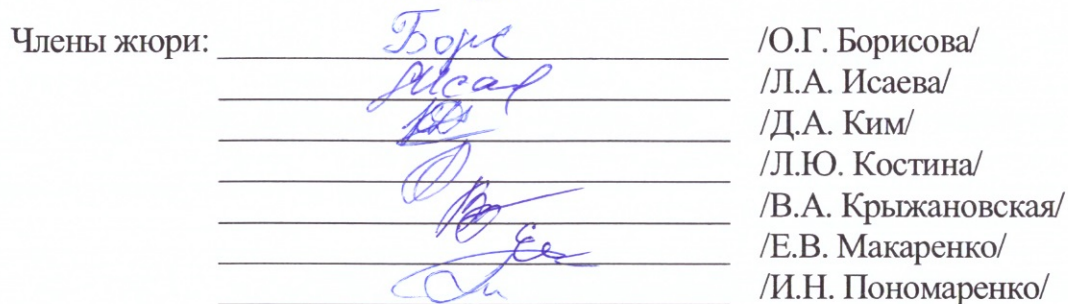 Члены жюри: Борис /О.Г. Борисова/
Исае /Л.А. Исаева/
/Д.А. Ким/
/Л.Ю. Костина/
/В.А. Крыжановская/
/Е.В. Макаренко/
/И.Н. Пономаренко/